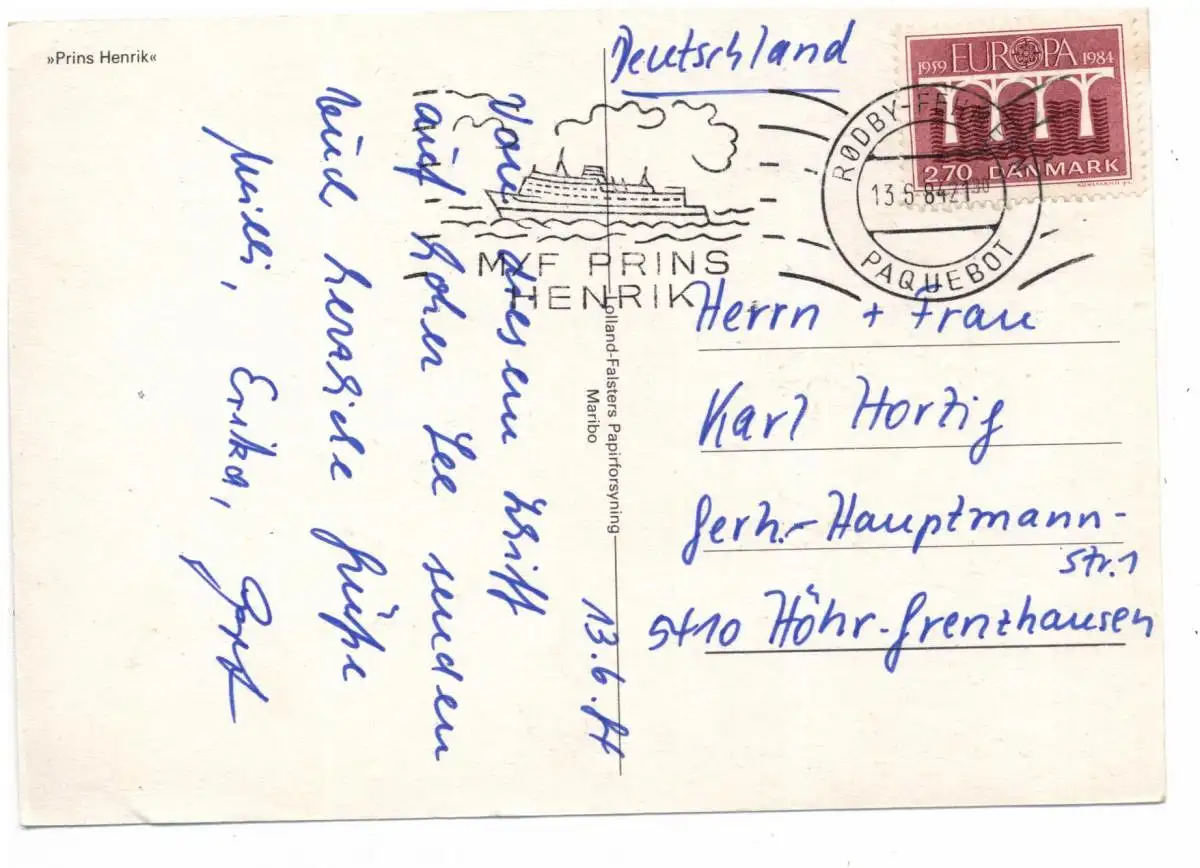 »Prins Henrik«
Deutschland
1959 EUROPA 1984
2.70 DANMARK
RØDBY-FE
13.6.84 21
PAQUEBOT
M/F PRINS
HENRIK
13.6.84
Von diesem Schiff
auf hoher See senden
Euch herzliche Grüße
Willi, Erika,
Lolland-Falsters Papirforsyning
Maribo
Herrn + Frau
Karl Hortig
Gerh.-Hauptmann-
Str.1
5410 Höhr-Grenzhausen